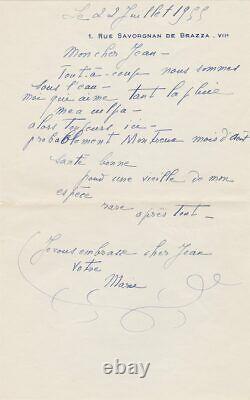 Le 22 Juillet 1955
1. RUE SAVORGNAN DE BRAZZA. VIIe
Mon cher Jean -
Tout-à-coup nous sommes
sous l'eau -
moi qui aime tant la pluie
mea culpa -
alors toujours ici -
probablement Montreux mois d'août
Santé bonne
pour une vieille de mon
espèce
rare après tout -
Je vous embrasse cher Jean
Votre
Marie